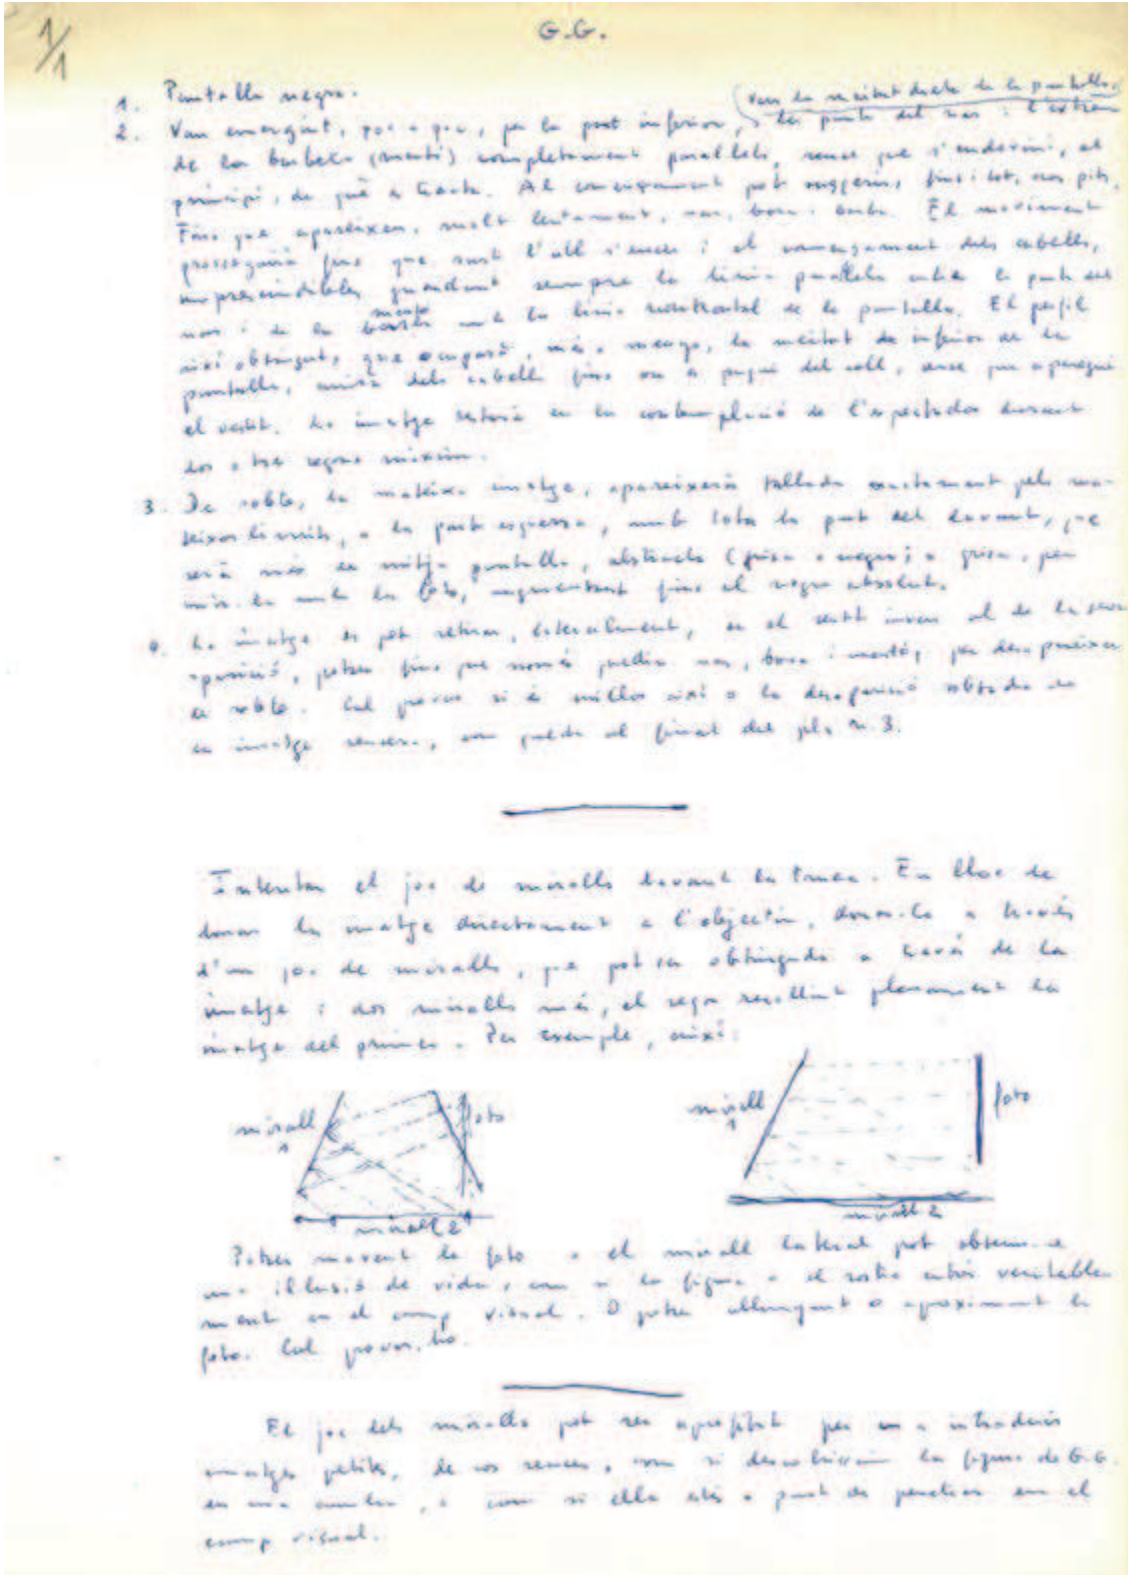 1/1
G.G.
1. Pantalla negra.
(van de meitat dreta de la pantalla)
2. Van emergint, poc a poc, per la part inferior, les punts del nas i l'extrem
de la barbeta (mentó) completament parallels, sense que s'endevini, al
principi, de què es tracta. Al començament pot suggerir, fins i tot, uns pits.
Fins que apareixen, molt lentament, nas, boca i barba. El moviment
prosseguirà fins que surt l'ull sencer i el començament dels cabells,
imprescindibles, guardant sempre la línia parallela entre la punta del
nas i de la mentó amb la línia horitzontal de la pantalla. El perfil
així obtingut, que ocuparà, més o menys, la meitat de inferior de la
pantalla, anirà dels cabells fins on es pugui del coll, sense que aparegui
el vestit. La imatge estarà en la contemplació de l'espectador durant
dos o tres segons màxim.
3. De sobte, la mateixa imatge, apareixerà tallada exactament pels ma-
teixos límits, a la part esquerra, amb tota la part del davant, que
serà més de mitja pantalla, abstracta (grisa o negra; o grisa, per
unir-la amb la foto, augmentant fins al negre absolut.
4. La imatge es pot retirar, literalment, en el sentit invers al de la seva
aparició, potser fins que només quedin nas, boca i mentó, per desaparèixer
de sobte. Cal provar si és millor així o la desaparició sobtada de
la imatge sencera, com queda al final del pla n. 3.
Intentar el joc de miralls davant la truca. En lloc de
donar la imatge directament a l'objectiu, donar-la a través
d'un joc de miralls, que pot ser obtinguda a través de la
imatge i dos miralls més, el segon recollint planament la
imatge del primer. Per exemple, així:
mirall 1 foto mirall 2
mirall 1 foto mirall 2
Potser movent la foto o el mirall lateral pot obtenir-se
una illusió de vida, com si la figura o el rostre entrés veritable-
ment en el camp visual. O potser allunyant o aproximant la
foto. Cal provar-ho.
El joc dels miralls pot ser aprofitat per a introduir
imatges petites, de cos sencer, com si descobríssim la figura de G.G.
en una cambra, o com si ella està a punt de penetrar en el
camp visual.